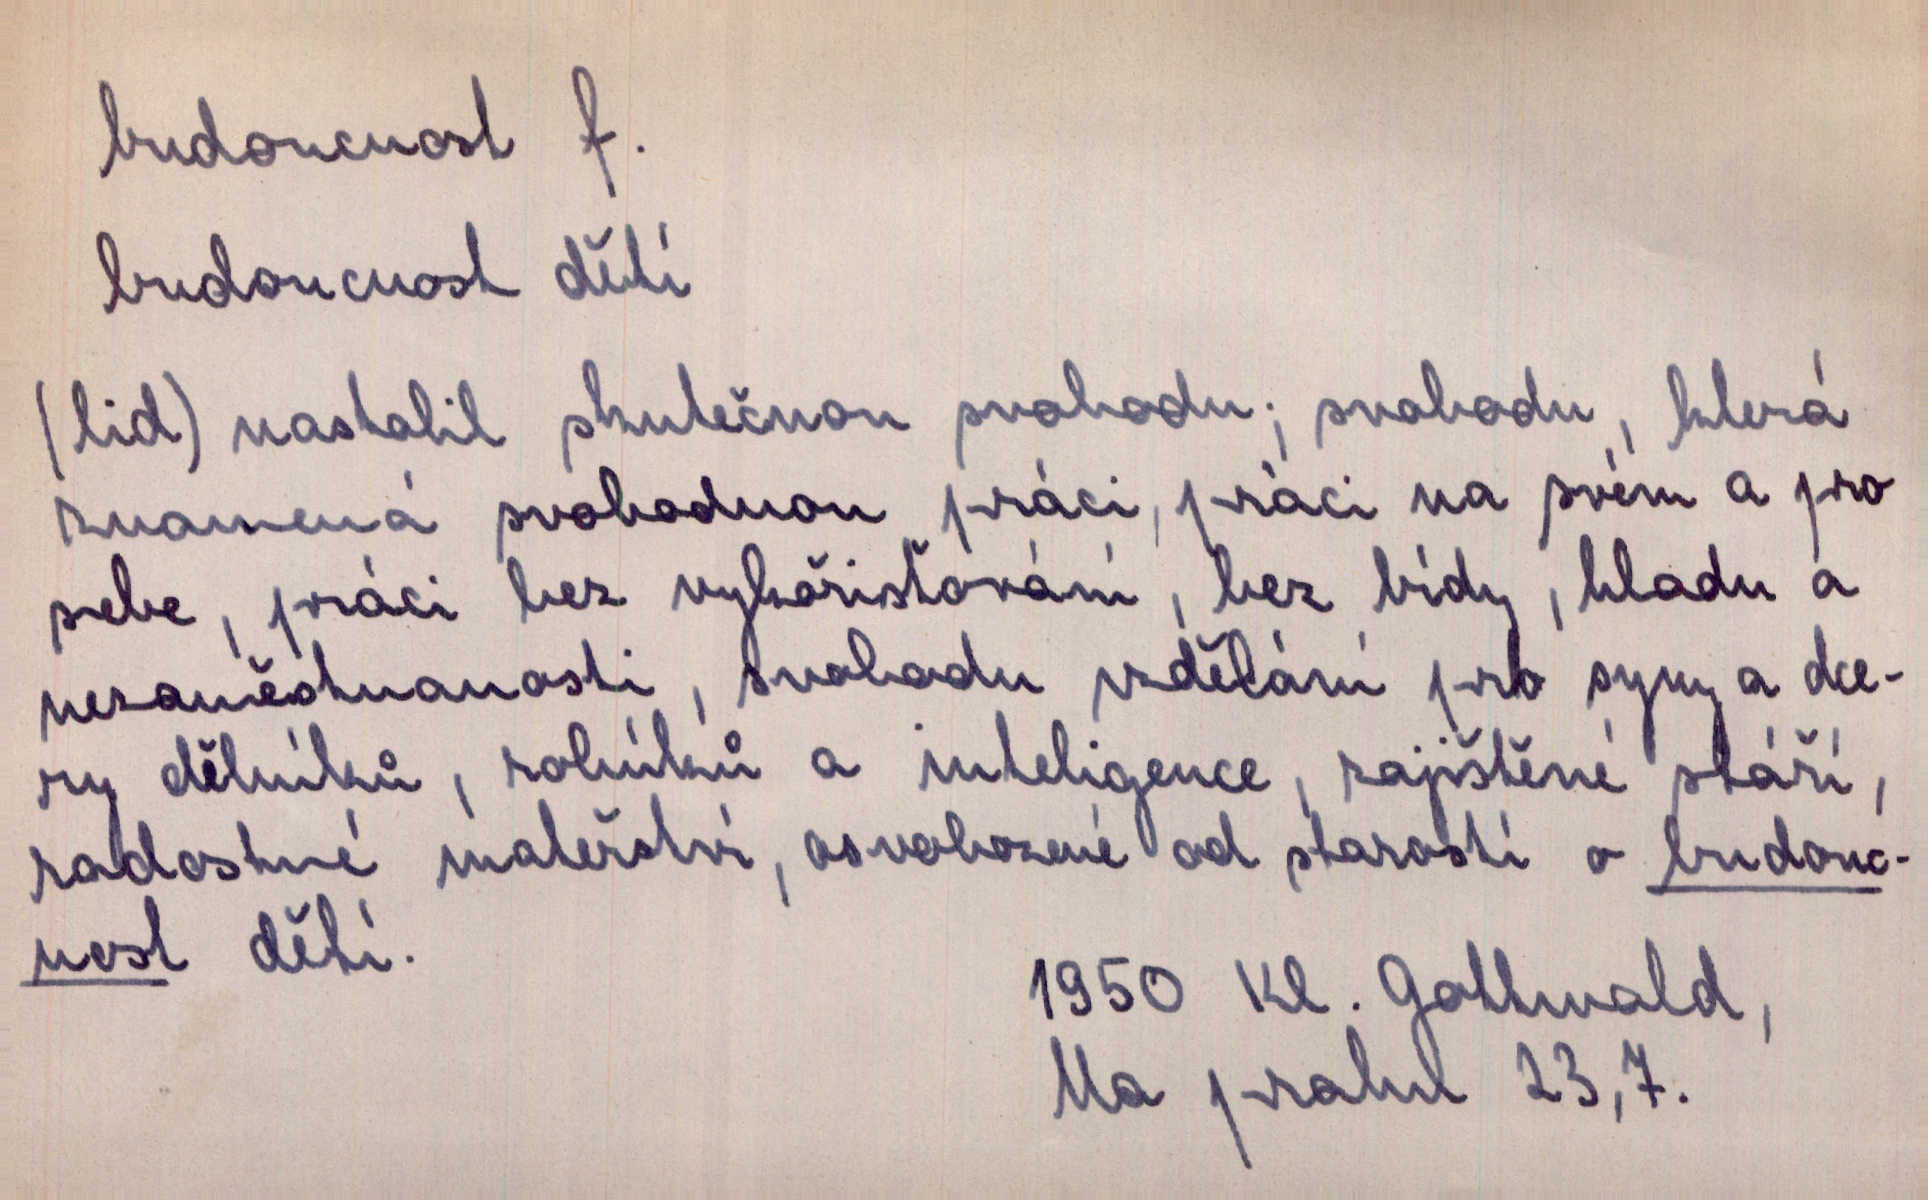 budoucnost f.
budoucnost dětí
(lid) nastolil skutečnou svobodu; svobodu, která
znamená svobodnou práci, práci na svém a pro
sebe, práci bez vykořisťování, bez bídy, hladu a
nezaměstnanosti, svobodu vzdělání pro syny a dce-
ry dělníků, rolníků a inteligence, zajištěné stáří,
radostné mateřství, osvobozené od starosti o budouc-
nost dětí.
1950 Kl. Gottwald,
Na prahu 23,7.